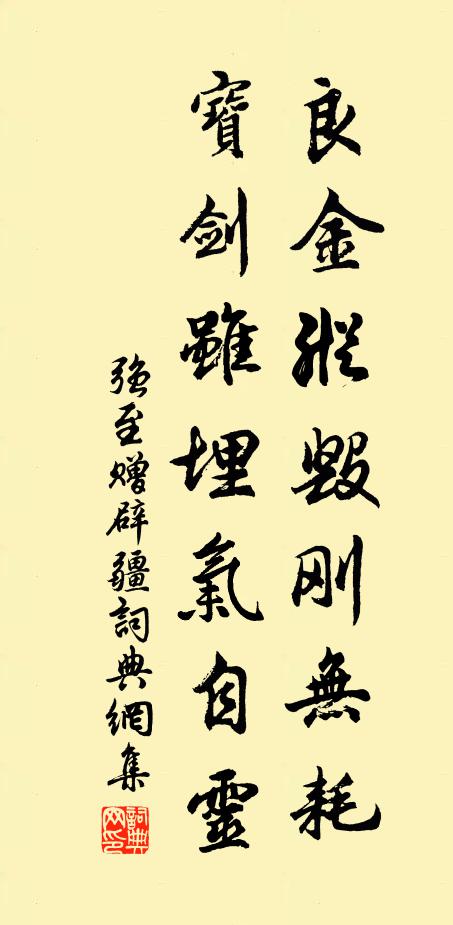 良金縱毀剛無耗
寶劍雖埋氣自靈
強至贈辟疆詞典網集
詞典網印